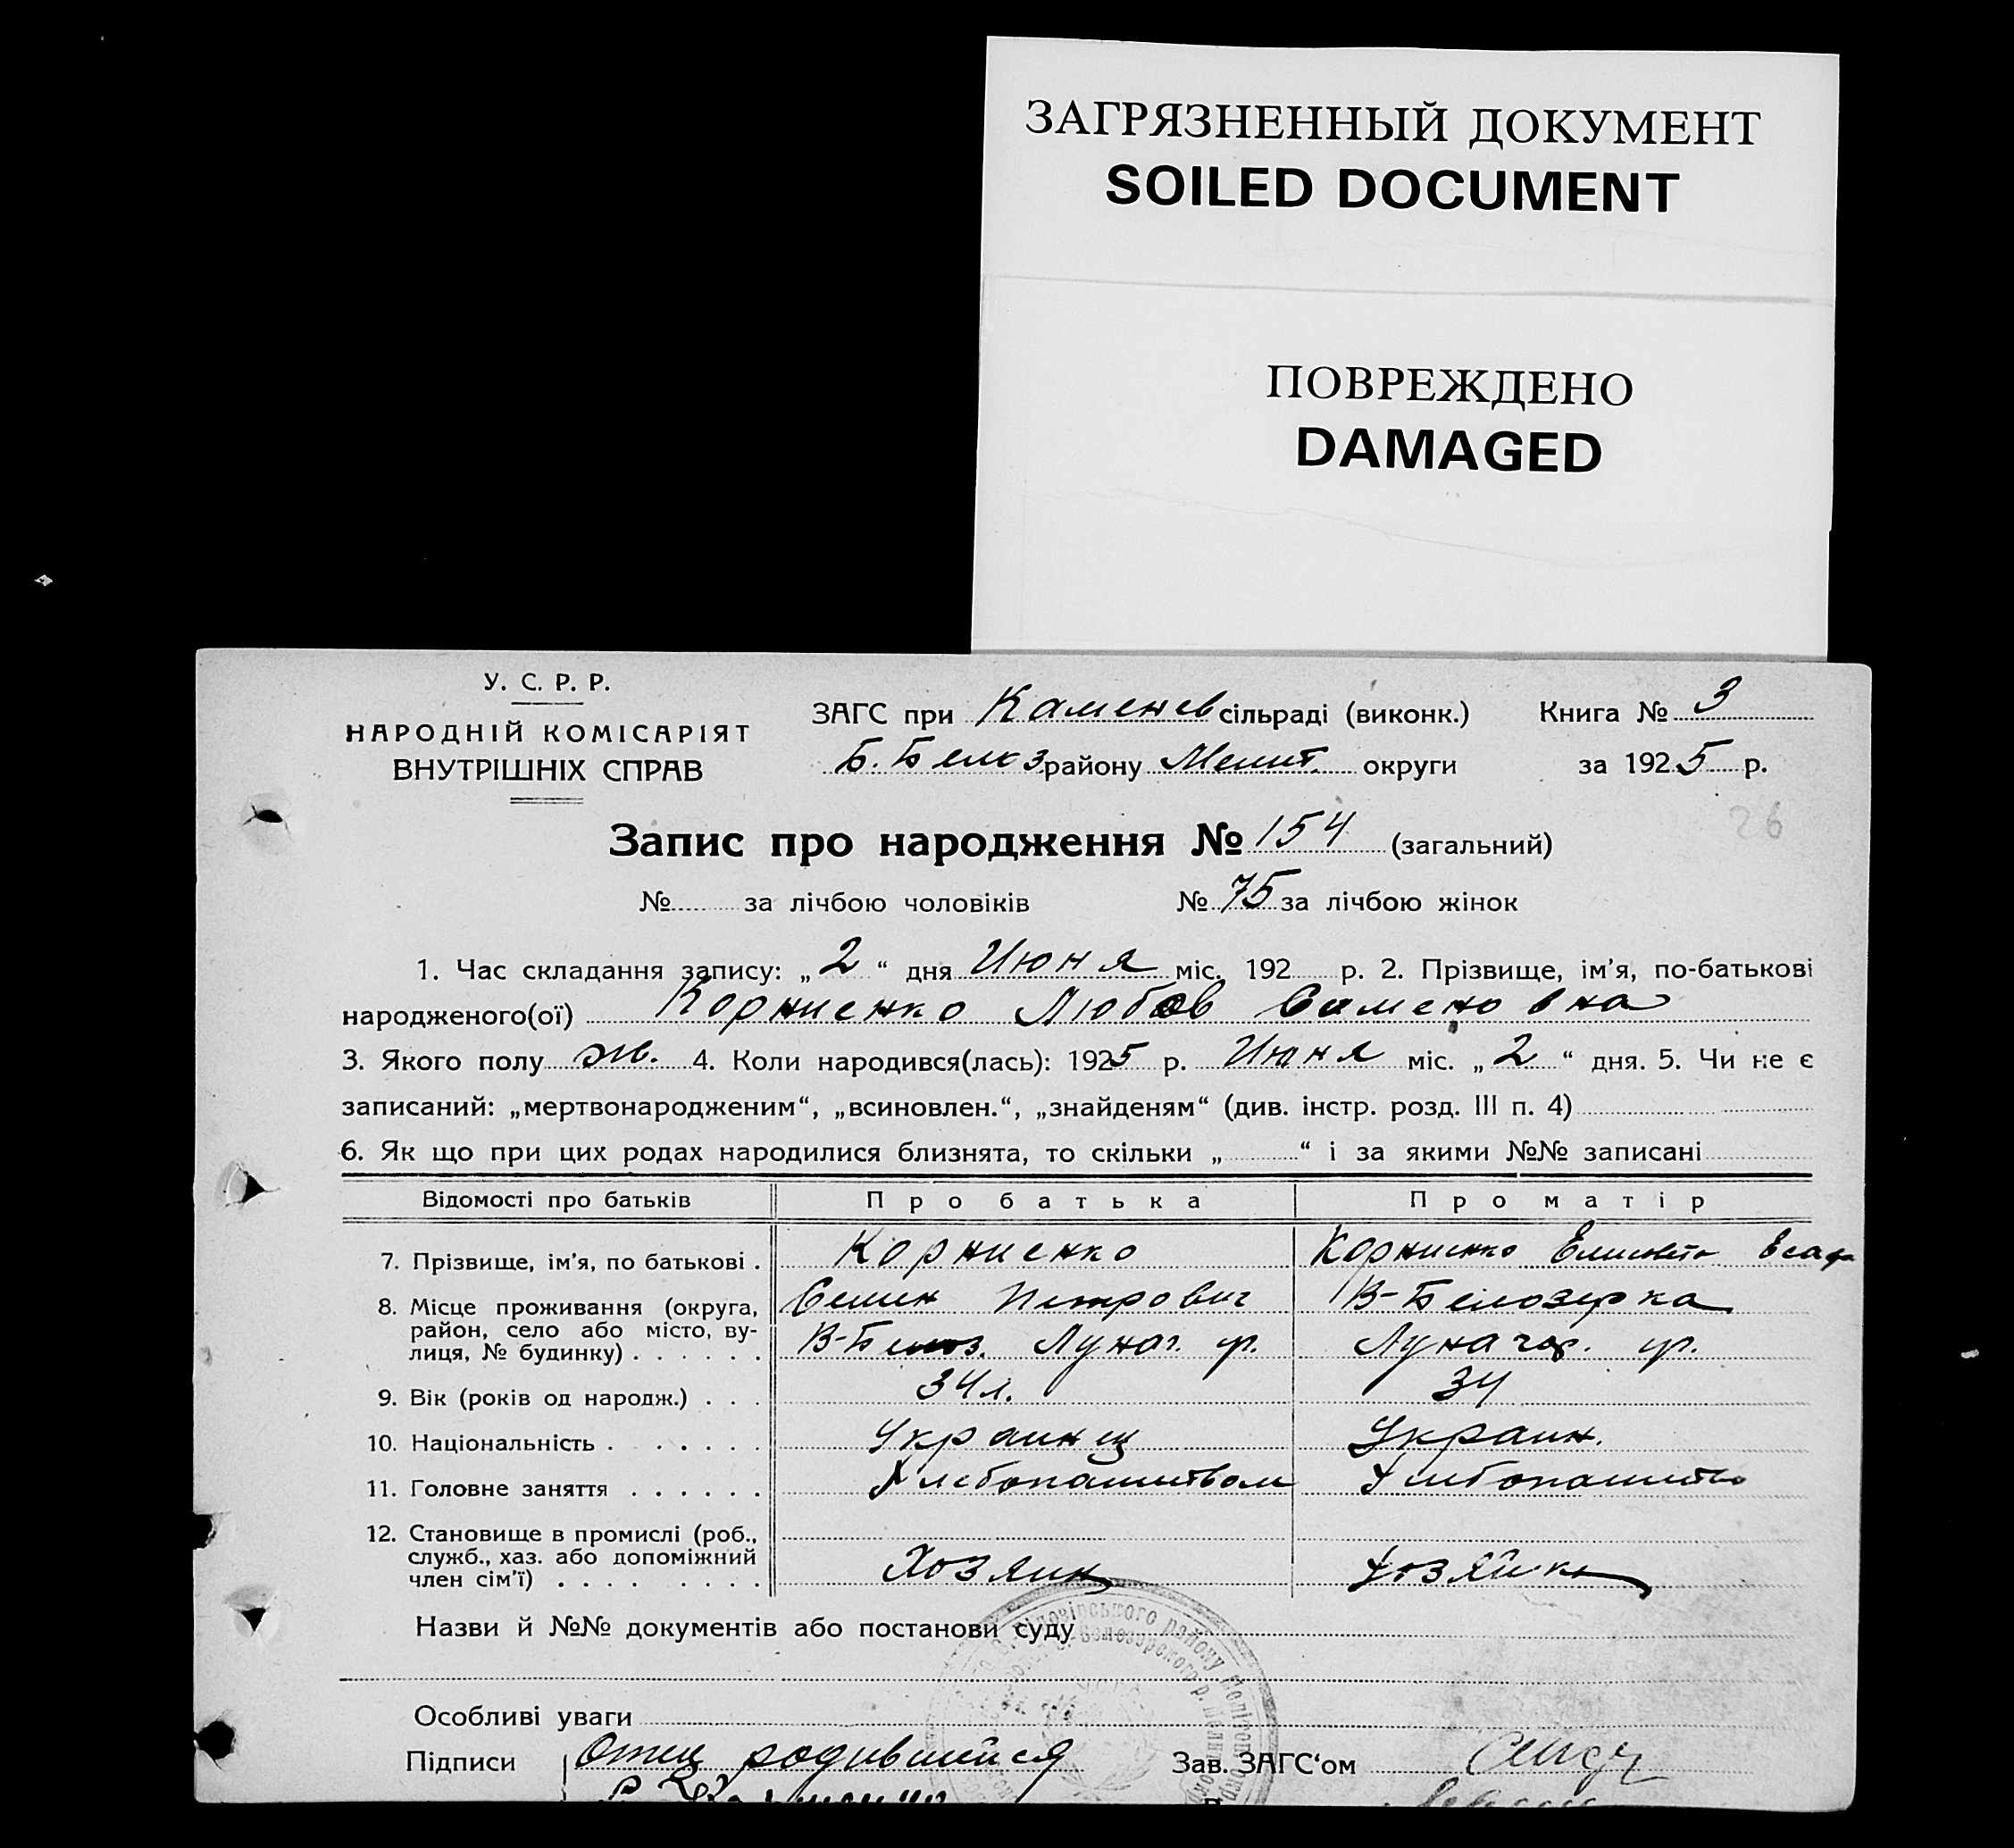 ЗАГРЯЗНЕННЫЙ ДОКУМЕНТ
SOILED DOCUMENT
ПОВРЕЖДЕНО
DAMAGED
У. С. Р. Р.
НАРОДНІЙ КОМІСАРІЯТ
ВНУТРІШНІХ СПРАВ
ЗАГС при Каменев сільраді (виконк.)
Б. Белоз району Мелит. округи
Книга № 3
за 1925 р.
26
Запис про народження № 154 (загальний)
№ за лічбою чоловіків № 75 за лічбою жінок
1. Час складання запису: „2“ дня Июня міс. 192 р. 2. Прізвище, ім'я, по-батькові
народженого(ої) Корниенко Любов Семеновна
3. Якого полу ж. 4. Коли народився(лась): 1925 р. Июня міс. „2“ дня. 5. Чи не є
записаний: „мертвонародженим“, „всиновлен.“, „знайденям“ (див. інстр. розд. III п. 4)
6. Як що при цих родах народилися близнята, то скільки „ “ і за якими №№ записані
Відомості про батьків Про батька Про матір
7. Прізвище, ім'я, по батькові . Корниенко Корниенко Елисовета
8. Місце проживання (округа, Семен Петрович В-Белозерка
район, село або місто, ву- В-Белоз. Лунач. ур. Луначар. ур.
лиця, № будинку)
9. Вік (років од народж.) 34 л. 34
10. Національність Украинец Украин.
11. Головне заняття Хлебопашеством Хлебопашеств
12. Становище в промислі (роб.,
служб., хаз. або допоміжний Хозяин Хозяйка
член сім'ї)
Назви й №№ документів або постанови суду
Особливі уваги
Підписи Отец родившейся Зав. ЗАГС'ом